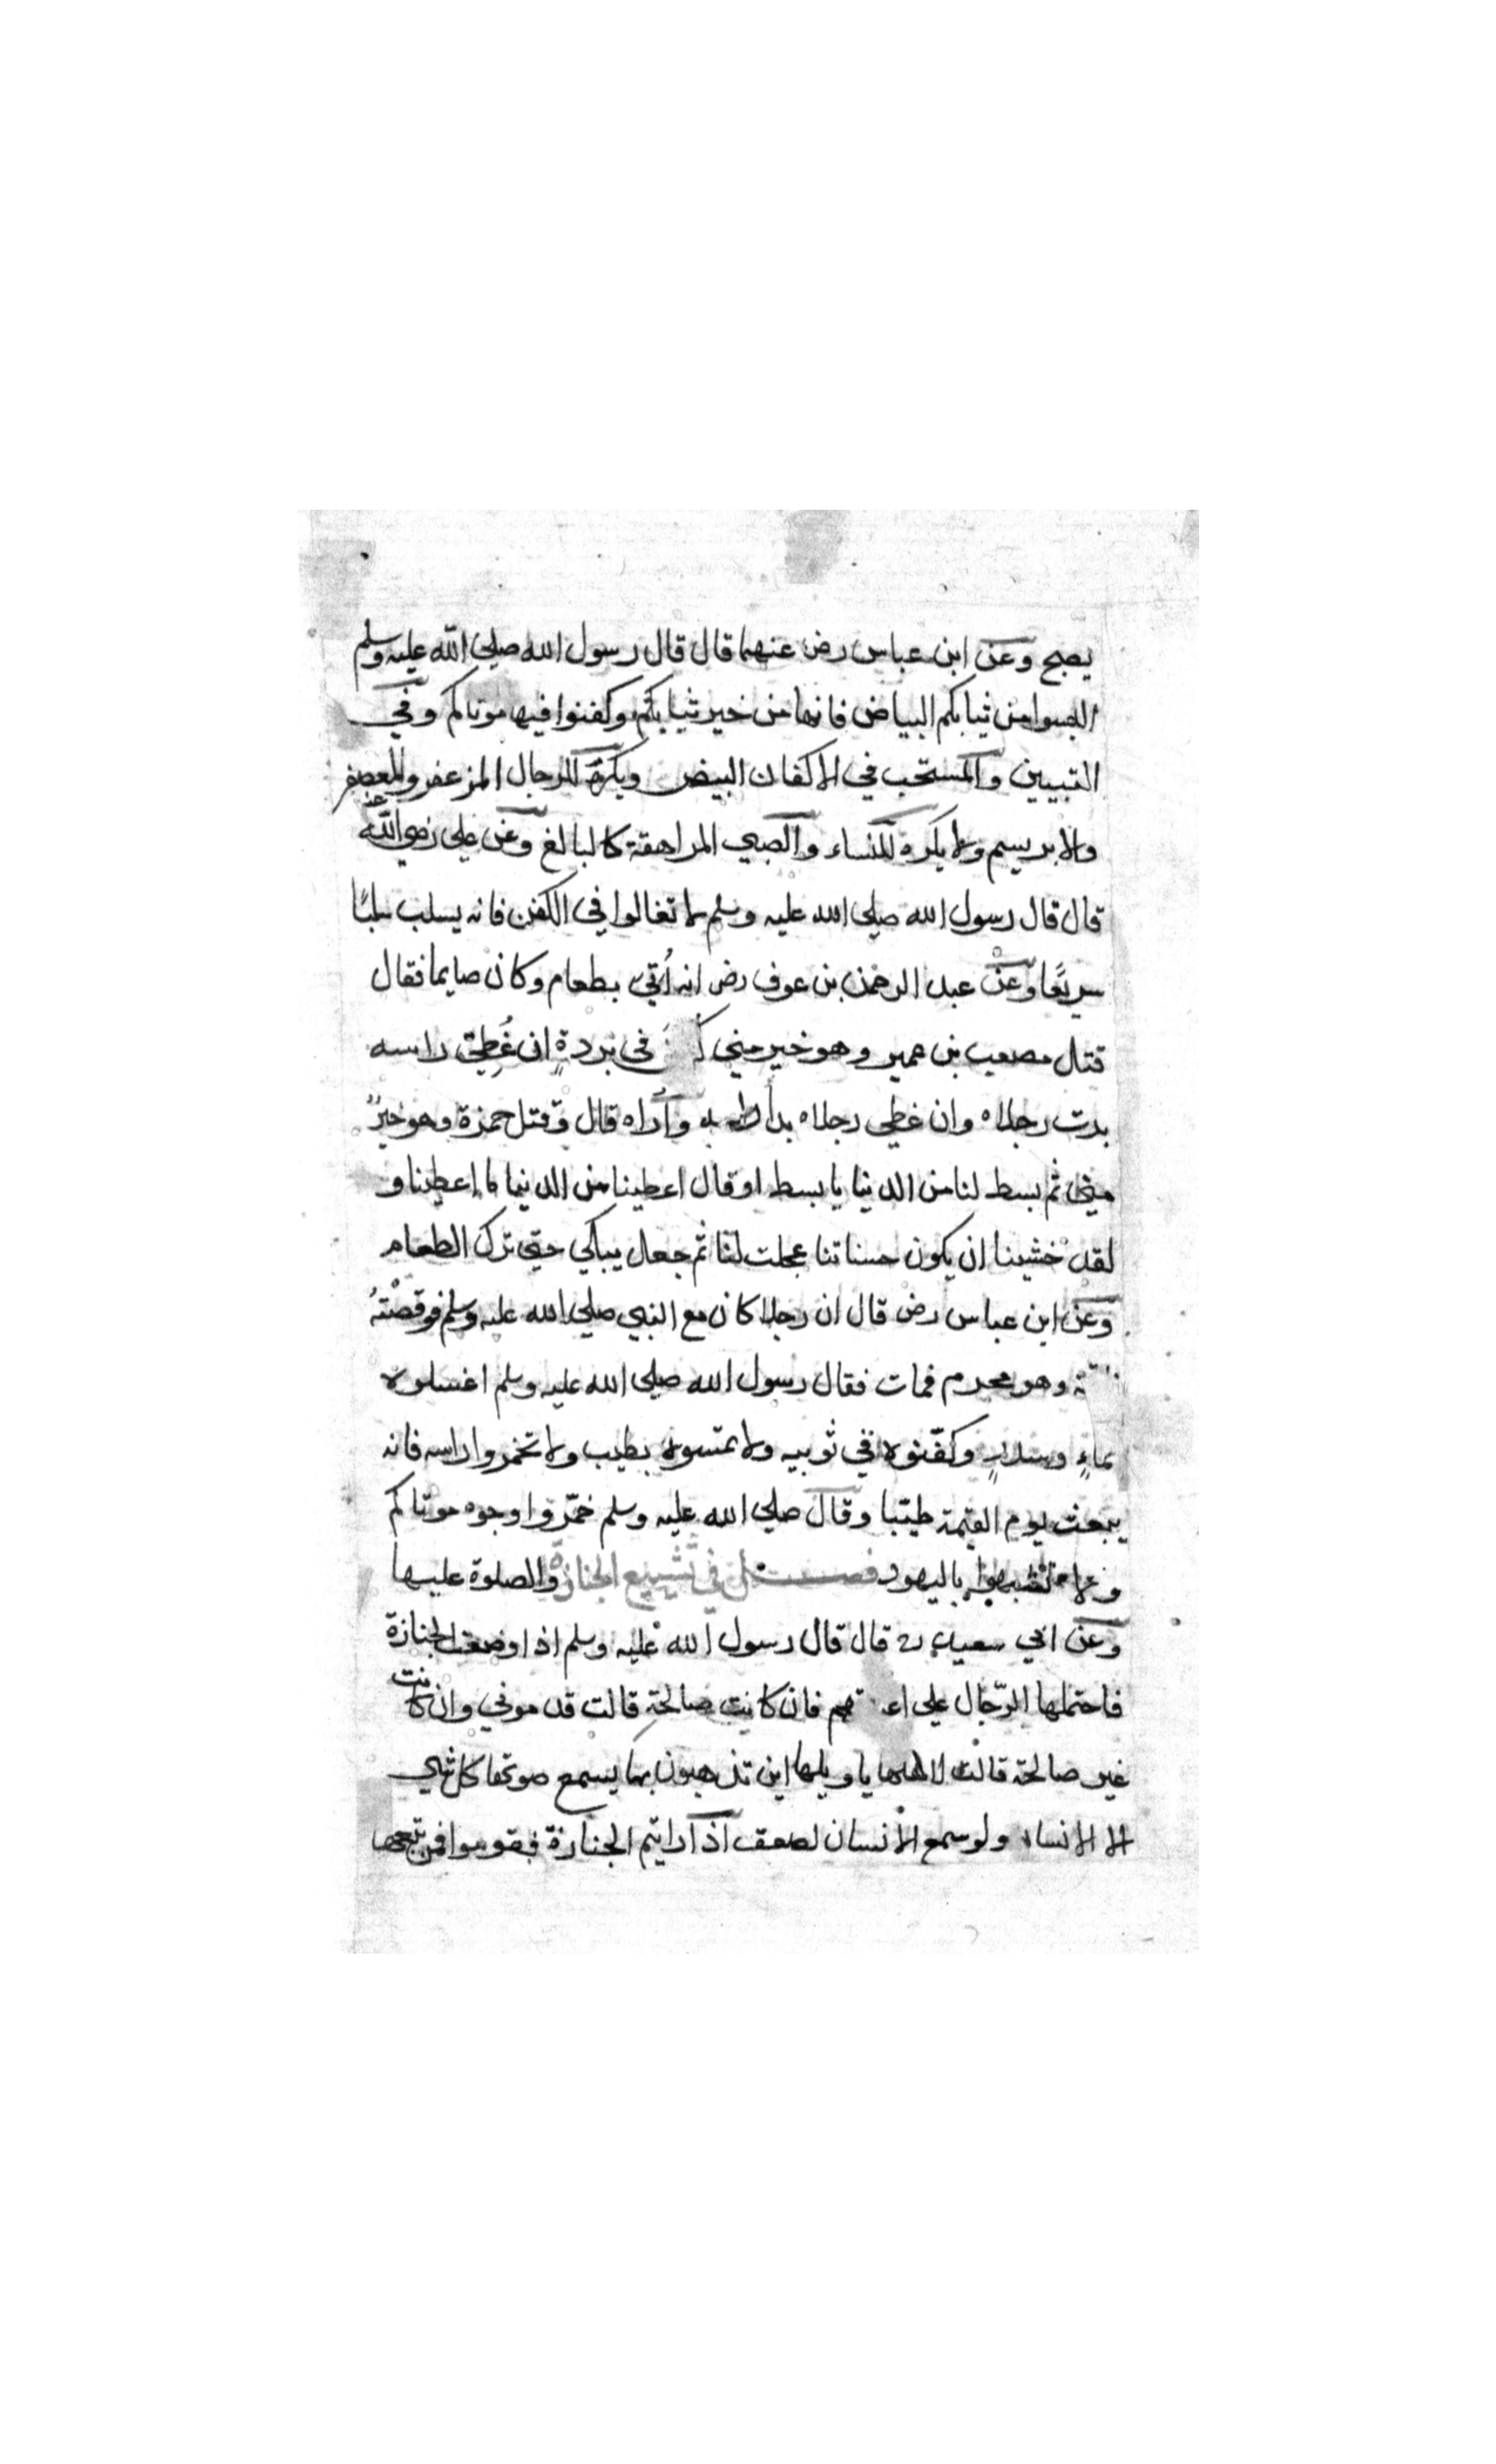 يصبح وعن ابن عباس رض عنهما قال قال رسول الله صلى الله عليه وسلم
البسوا من ثيابكم البياض فانها من خير ثيابكم وكفنوا فيها موتاكم وفي
التبيين والمستحب في الاكفان البيض ويكره للرجال المزعفر والمعصفر
والابريسم ولا يكره للنساء والصبي المراهقة كالبالغ وعن علي رضي الله عنه
قال قال رسول الله صلى الله عليه وسلم لا تغالوا في الكفن فانه يسلب سلبًا
سريعًا وعن عبد الرحمن بن عوف رض انه أُتي بطعام وكان صايما فقال
قتل مصعب بن عمير وهو خير مني في بردةٍ ان غُطي راسه
بدت رجلاه وان غطي رجلاه بدا وأراه قال وقتل حمزة وهو خيرٌ
مني ثم بسط لنا من الدنيا يا بسط او قال اعطينا من الدنيا ما اعطينا و
لقد خشينا ان يكون حسناتنا عجلت لنا ثم جعل يبكي حتى ترك الطعام
وعن ابن عباس رض قال ان رجلا كان مع النبي صلى الله عليه وسلم فوقصْتهُ
وهو محرم فمات فقال رسول الله صلى الله عليه وسلم اغسلوه
بماءٍ وسدرٍ وكفّنوه في ثوبيه ولا تمسوه بطيب ولا تخمروا راسه فانه
يبعث يوم القيمة طيّبا وقال صلى الله عليه وسلم خمّروا وجوه موتاكم
ولا تشبهوا باليهود فصل في تشييع الجنازة والصلوة عليها
وعن ابي سعيد قال قال رسول الله عليه وسلم اذا وضعت الجنازة
فاحتملها الرّجال على فان كانت صالحة قالت قدموني وان كانت
غير صالحة قالت لاهلها يا ويلها اين تذهبون بها يسمع صوتها كل شي
الا الانسان ولو سمع الانسان لصعق اذا رايتم الجنازة فقوموا فمن تبعها